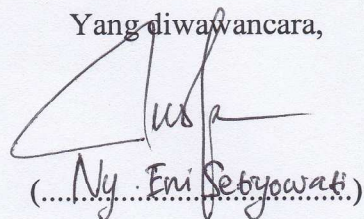 Yang diwawancara,
(....Ny. Eni Setyowati....)